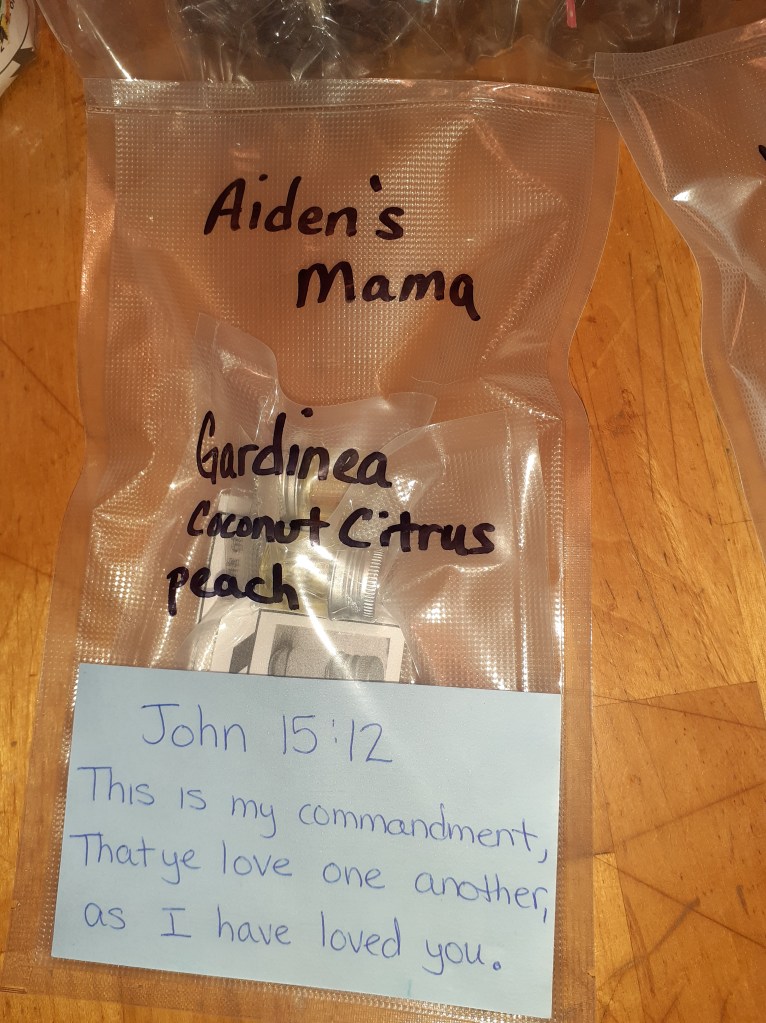 Aiden's
Mama
Gardinea
Coconut Citrus
peach
John 15:12
This is my commandment,
That ye love one another,
as I have loved you.